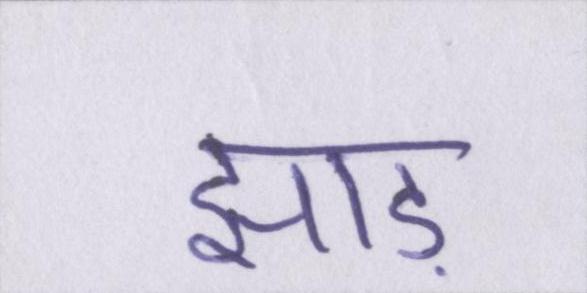 झाड़